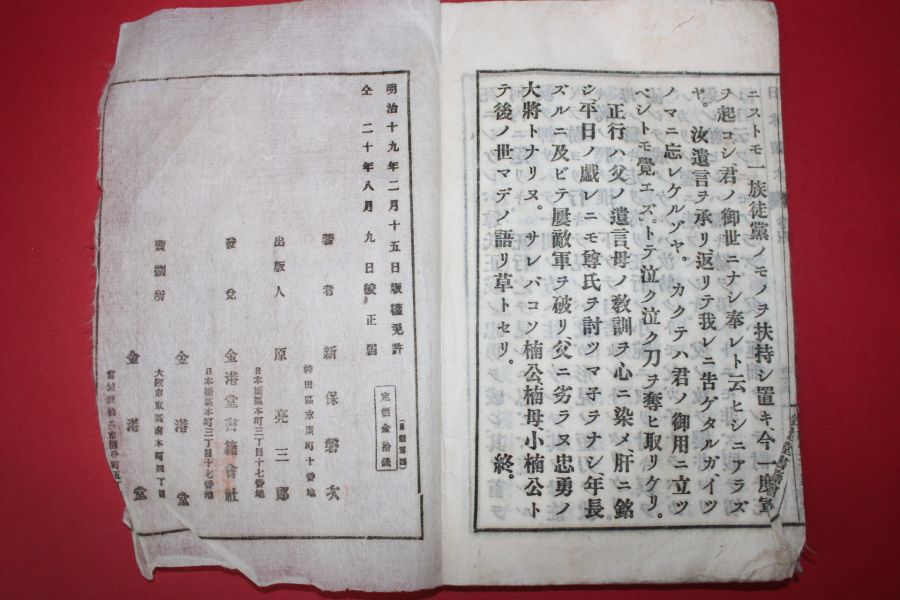 ニストモ一族徒黨ノモノヲ扶持シ置キ、今一度軍
ヲ起コシ、君ノ御世ニナシ奉レト云ヒシニアラズ
ヤ。汝遺言ヲ承リ、返リテ我レニ告ゲタルガ、イツ
ノマニ忘レケルゾヤ。カクテハ君ノ御用ニ立ツ
ベシトモ覺エズ。トテ泣ク泣ク刀ヲ奪ヒ取リケリ。
正行ハ父ノ遺言、母ノ敎訓ヲ心ニ染メ、肝ニ銘
シ、平日ノ戲レニモ尊氏ヲ討ツマ子ヲナシ、年長
ズルニ及ビテ屢敵軍ヲ破リ、父ニ劣ラヌ忠勇ノ
大將トナリヌ。サレバコソ楠公楠母小楠公ト
テ後ノ世マデノ語リ草トセリ。終。
明治十九年二月十五日版權免許
仝二十年八月九日校正屆
定價金拾錢
著者 新保磐次
神田區末廣町十番地
出版人 原亮三郎
日本橋區本町三丁目十七番地
發兌 金港堂書籍會社
日本橋區本町三丁目十七番地
金港堂
大阪市東區南本町四丁目
發捌所 金港堂